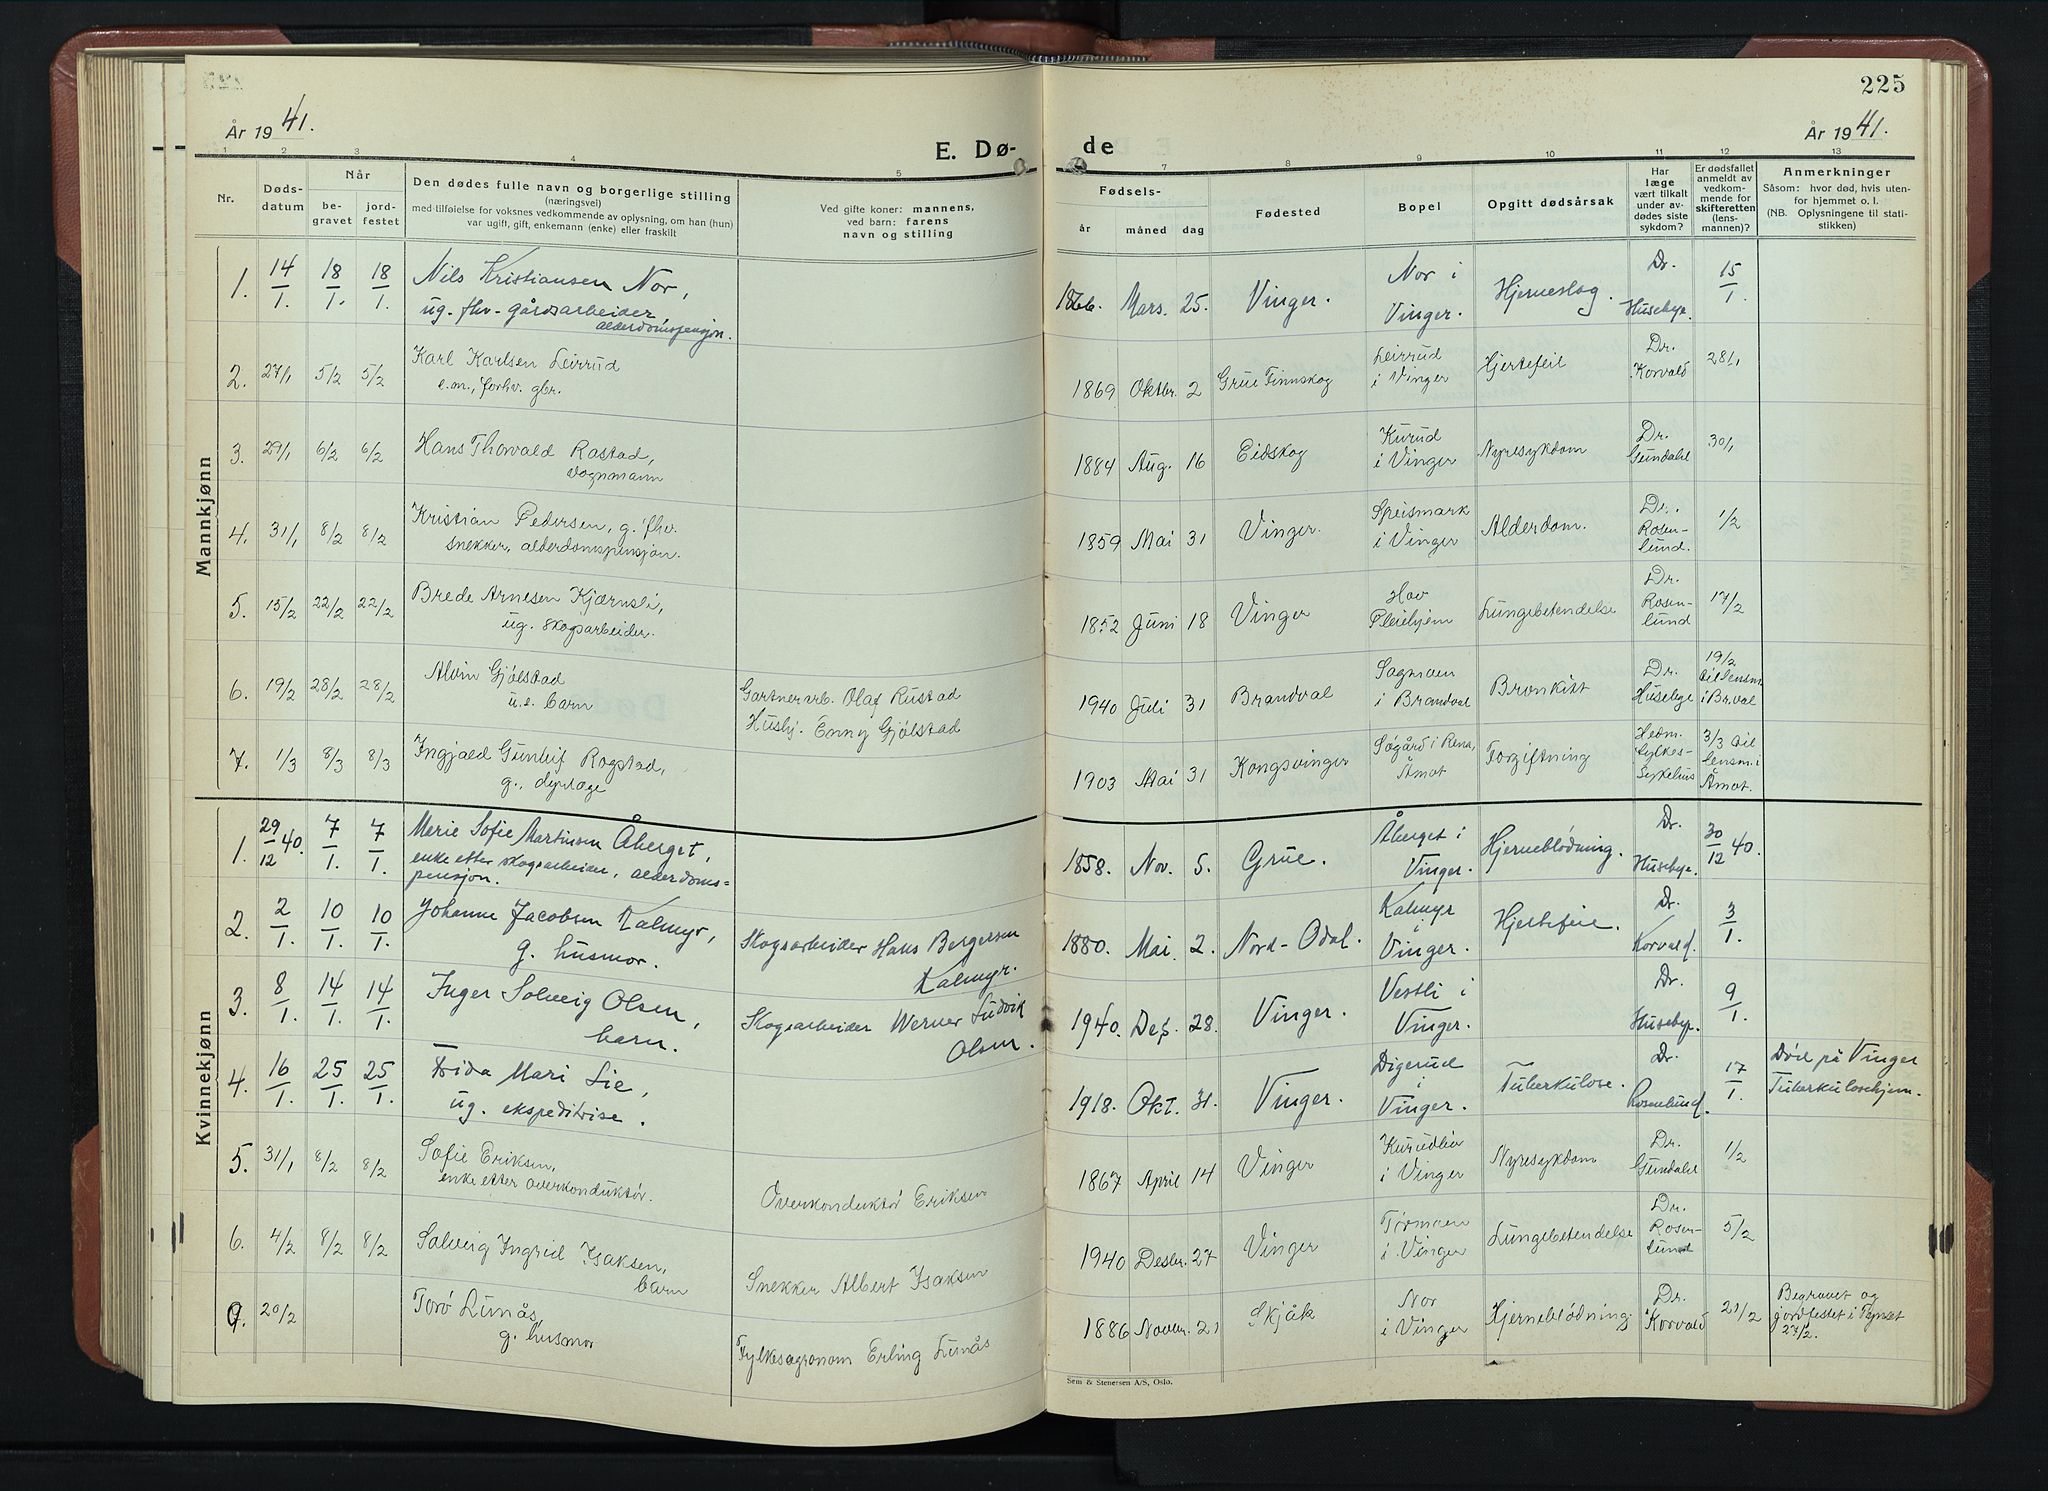 225
År 1941.
E. Dø-
de
År 1941.
1 2 3 4 5 7 8 9 10 11 12 13
Nr.
Døds-
datum
Når
be-
gravet
jord-
festet
Den dødes fulle navn og borgerlige stilling
(næringsvei)
med tilføielse for voksnes vedkommende av oplysning, om han (hun)
var ugift, gift, enkemann (enke) eller fraskilt
Ved gifte koner: mannens,
ved barn: farens
navn og stilling
Fødsels-
år måned dag
Fødested
Bopel
Opgitt dødsårsak
Har
læge
vært tilkalt
under av-
dødes siste
sykdom?
Er dødsfallet
anmeldt av
vedkom-
mende for
skifteretten
(lens-
mannen)?
Anmerkninger
Såsom: hvor død, hvis uten-
for hjemmet o. l.
(NB. Oplysningene til stati-
stikken)
Mannkjønn
1. 14/1. 18/1. 18/1. Nils Kristiansen Nor,
ug. fhv. gårdsarbeider
alderdomspensjon.
1866. Mars. 25. Vinger. Nor i
Vinger. Hjerneslag. Dr.
Husebye. 15/1.
2. 27/1 5/2 5/2 Karl Karlsen Leirrud
e.m., forhv. gbr.
1869 Oktbr. 2 Grue Finnskog Leirrud
i Vinger Hjertefeil Dr.
Korvald 28/1
3. 29/1 6/2 6/2 Hans Thorvald Rastad,
vognmann
1884 Aug. 16 Eidskog Kurud
i Vinger Nyresykdom Dr.
Gundahl 30/1
4. 31/1 8/2 8/2 Kristian Pedersen, g. fhv.
snekker, alderdomspensjon.
1859 Mai 31 Vinger. Speismark
i Vinger Alderdom. Dr.
Rosen-
lund. 1/2
5. 15/2 22/2 22/2 Brede Arnesen Kjærnsli,
ug. skogsarbeider.
1852 Juni 18 Vinger Hov
Pleiehjem Lungebetendelse Dr.
Rosen-
lund 17/2
6. 19/2 28/2 28/2 Alvin Gjølstad
u.e. barn
Gartnerarb. Olaf Rustad
Hushj. Enny Gjølstad
1940 Juli 31 Brandval Sagmoen
i Brandval Bronkitt Dr.
Husebye 19/2
til lensm.
i Br.val
7. 1/3 8/3 8/3 Ingjald Gunleif Rogstad,
g., dyrlæge
1903 Mai 31 Kongsvinger Søgård i Rena,
Åmot Forgiftning Hedm.
fylkes-
sykehus 3/3 til
lensm. i
Åmot.
Kvinnekjønn
1. 29/12 40. 7/1. 7/1. Marie Sofie Martinsen Åberget,
enke etter skogsarbeider, alderdoms=
pensjon.
1858. Nov. 5. Grue. Åberget i
Vinger. Hjerneblødning. Dr.
Husebye. 30/12 40.
2. 2/1. 10/1. 10/1. Johanne Jacobsen Kalmyr,
g. husmor.
Skogsarbeider Hans Bergersen
Kalmyr.
1880. Mai. 2. Nord-Odal. Kalmyr
i
Vinger. Hjertefeil. Dr.
Korvald. 3/1.
3. 8/1. 14/1. 14/1. Inger Solveig Olsen,
barn.
Skogsarbeider Werner Ludvik
Olsen.
1940. Des. 28. Vinger. Vestli i
Vinger. Dr.
Husebye. 9/1.
4. 16/1. 25/1. 25/1. Frida Mari Lie,
ug. ekspeditrise.
1918. Okt. 31. Vinger. Digerud
i
Vinger. Tuberkulose. Dr.
Rosenlund. 17/1. Død på Vinger
Tuberkulosehjem.
5. 31/1 8/2 8/2 Sofie Eriksen,
enke etter overkonduktør.
Overkonduktør Eriksen
1867 April 14 Vinger Kurudlia
i Vinger Nyresykdom Dr.
Gundahl 1/2
6. 4/2 8/2 8/2 Solveig Ingrid Isaksen,
barn
Snekker Albert Isaksen
1940 Desbr. 27 Vinger Tørmoen
i Vinger Lungebetendelse Dr.
Rosen-
lund 5/2
20/2 Torø Lunås,
g. husmor
Fylkesagronom Erling Lunås
1886 Novbr. 21 Skjåk Nor
i Vinger Hjerneblødning Dr.
Korvald 21/2 Begravet og
jordfestet i Tynset
27/2.
Sem & Stenersen A/S, Oslo.